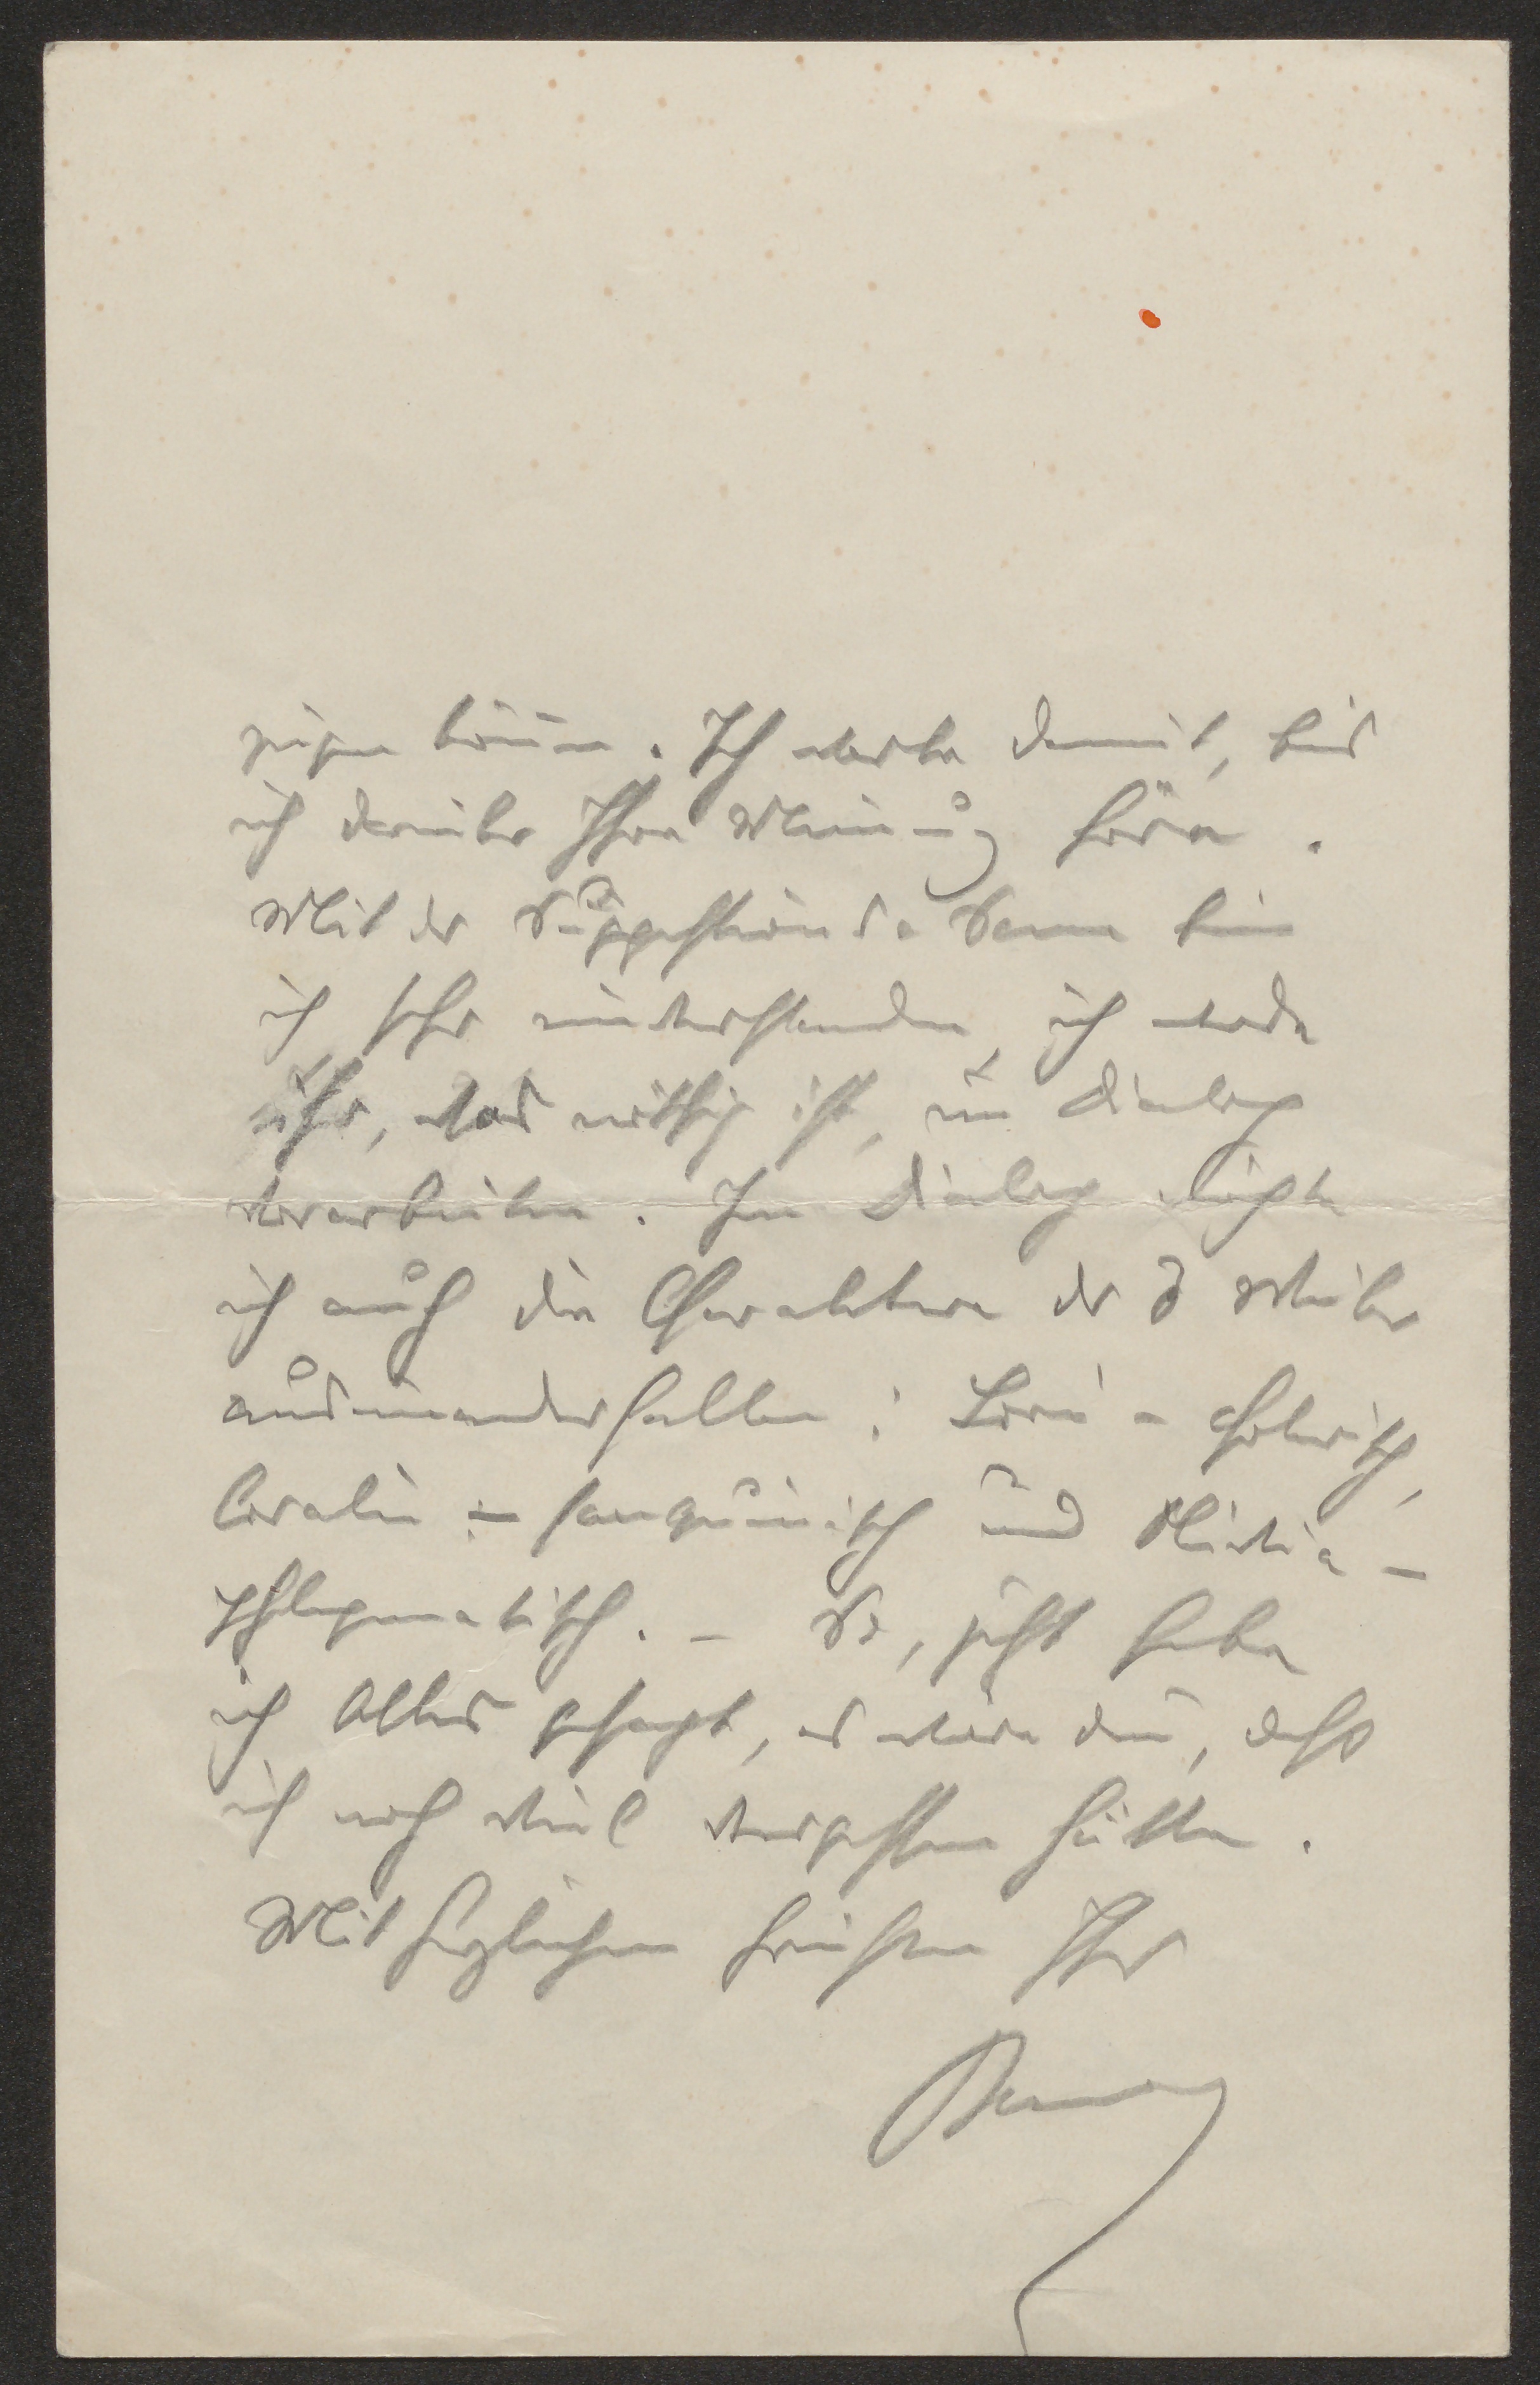 zeigen können. Ich warte damit, bis
ich darüber Ihre Meinung höre.
Mit der Suggestions-Scene bin
ich sehr einverstanden, ich werde
ihr, was nöthig ist, im Dialog
vorarbeiten. Im Dialog möchte
ich auch die Charaktere der 3 Weiber
auseinanderhalten: Lori – cholerisch,
Coralie – sanguinisch und Mizi –
phlegmatisch. – So, jetzt habe
ich Alles gesagt, es wäre denn, dass
ich noch viel vergessen hätte.
Mit herzlichen Grüssen Ihr